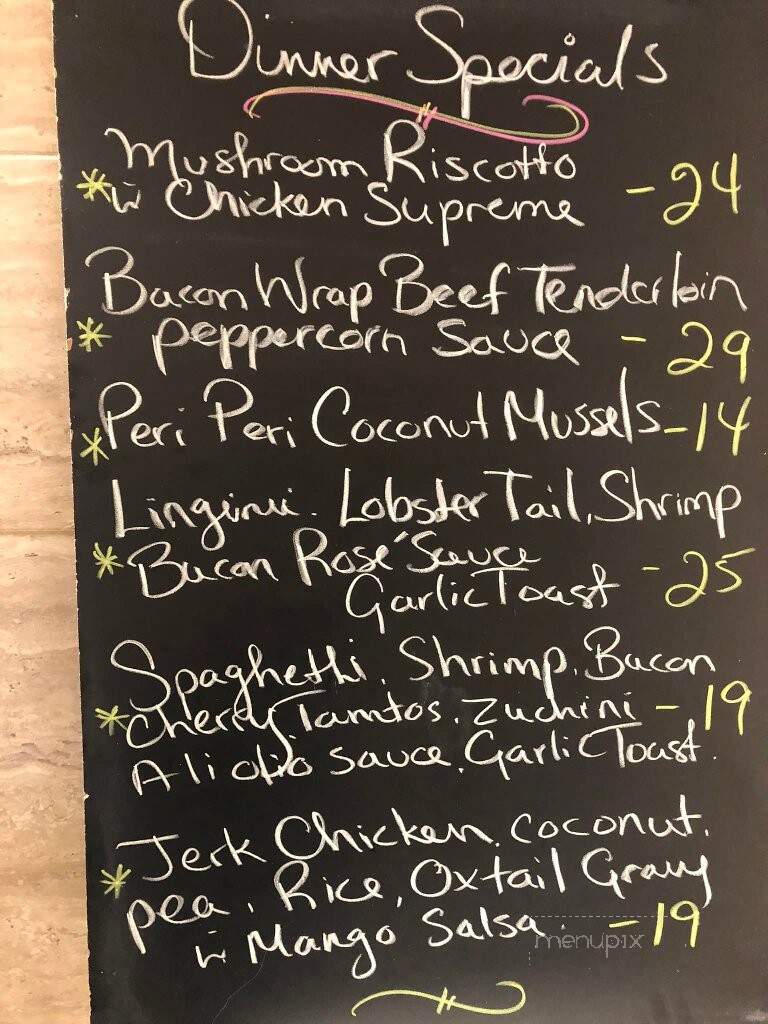 Dinner Specials
Mushroom Riscotto
* w Chicken Supreme - 24
Bacon Wrap Beef Tenderloin
* peppercorn Sauce - 29
* Peri Peri Coconut Mussels - 14
Linginui. Lobster Tail, Shrimp
* Bacon Rosé Sauce - 25
Garlic Toast
Spaghethi, Shrimp, Bacon
* Cherry Tamtos, Zuchini - 19
Ali olio sauce, Garlic Toast.
Jerk Chicken, coconut,
* pea, Rice, Oxtail Gravy
w Mango Salsa. - 19
menupix